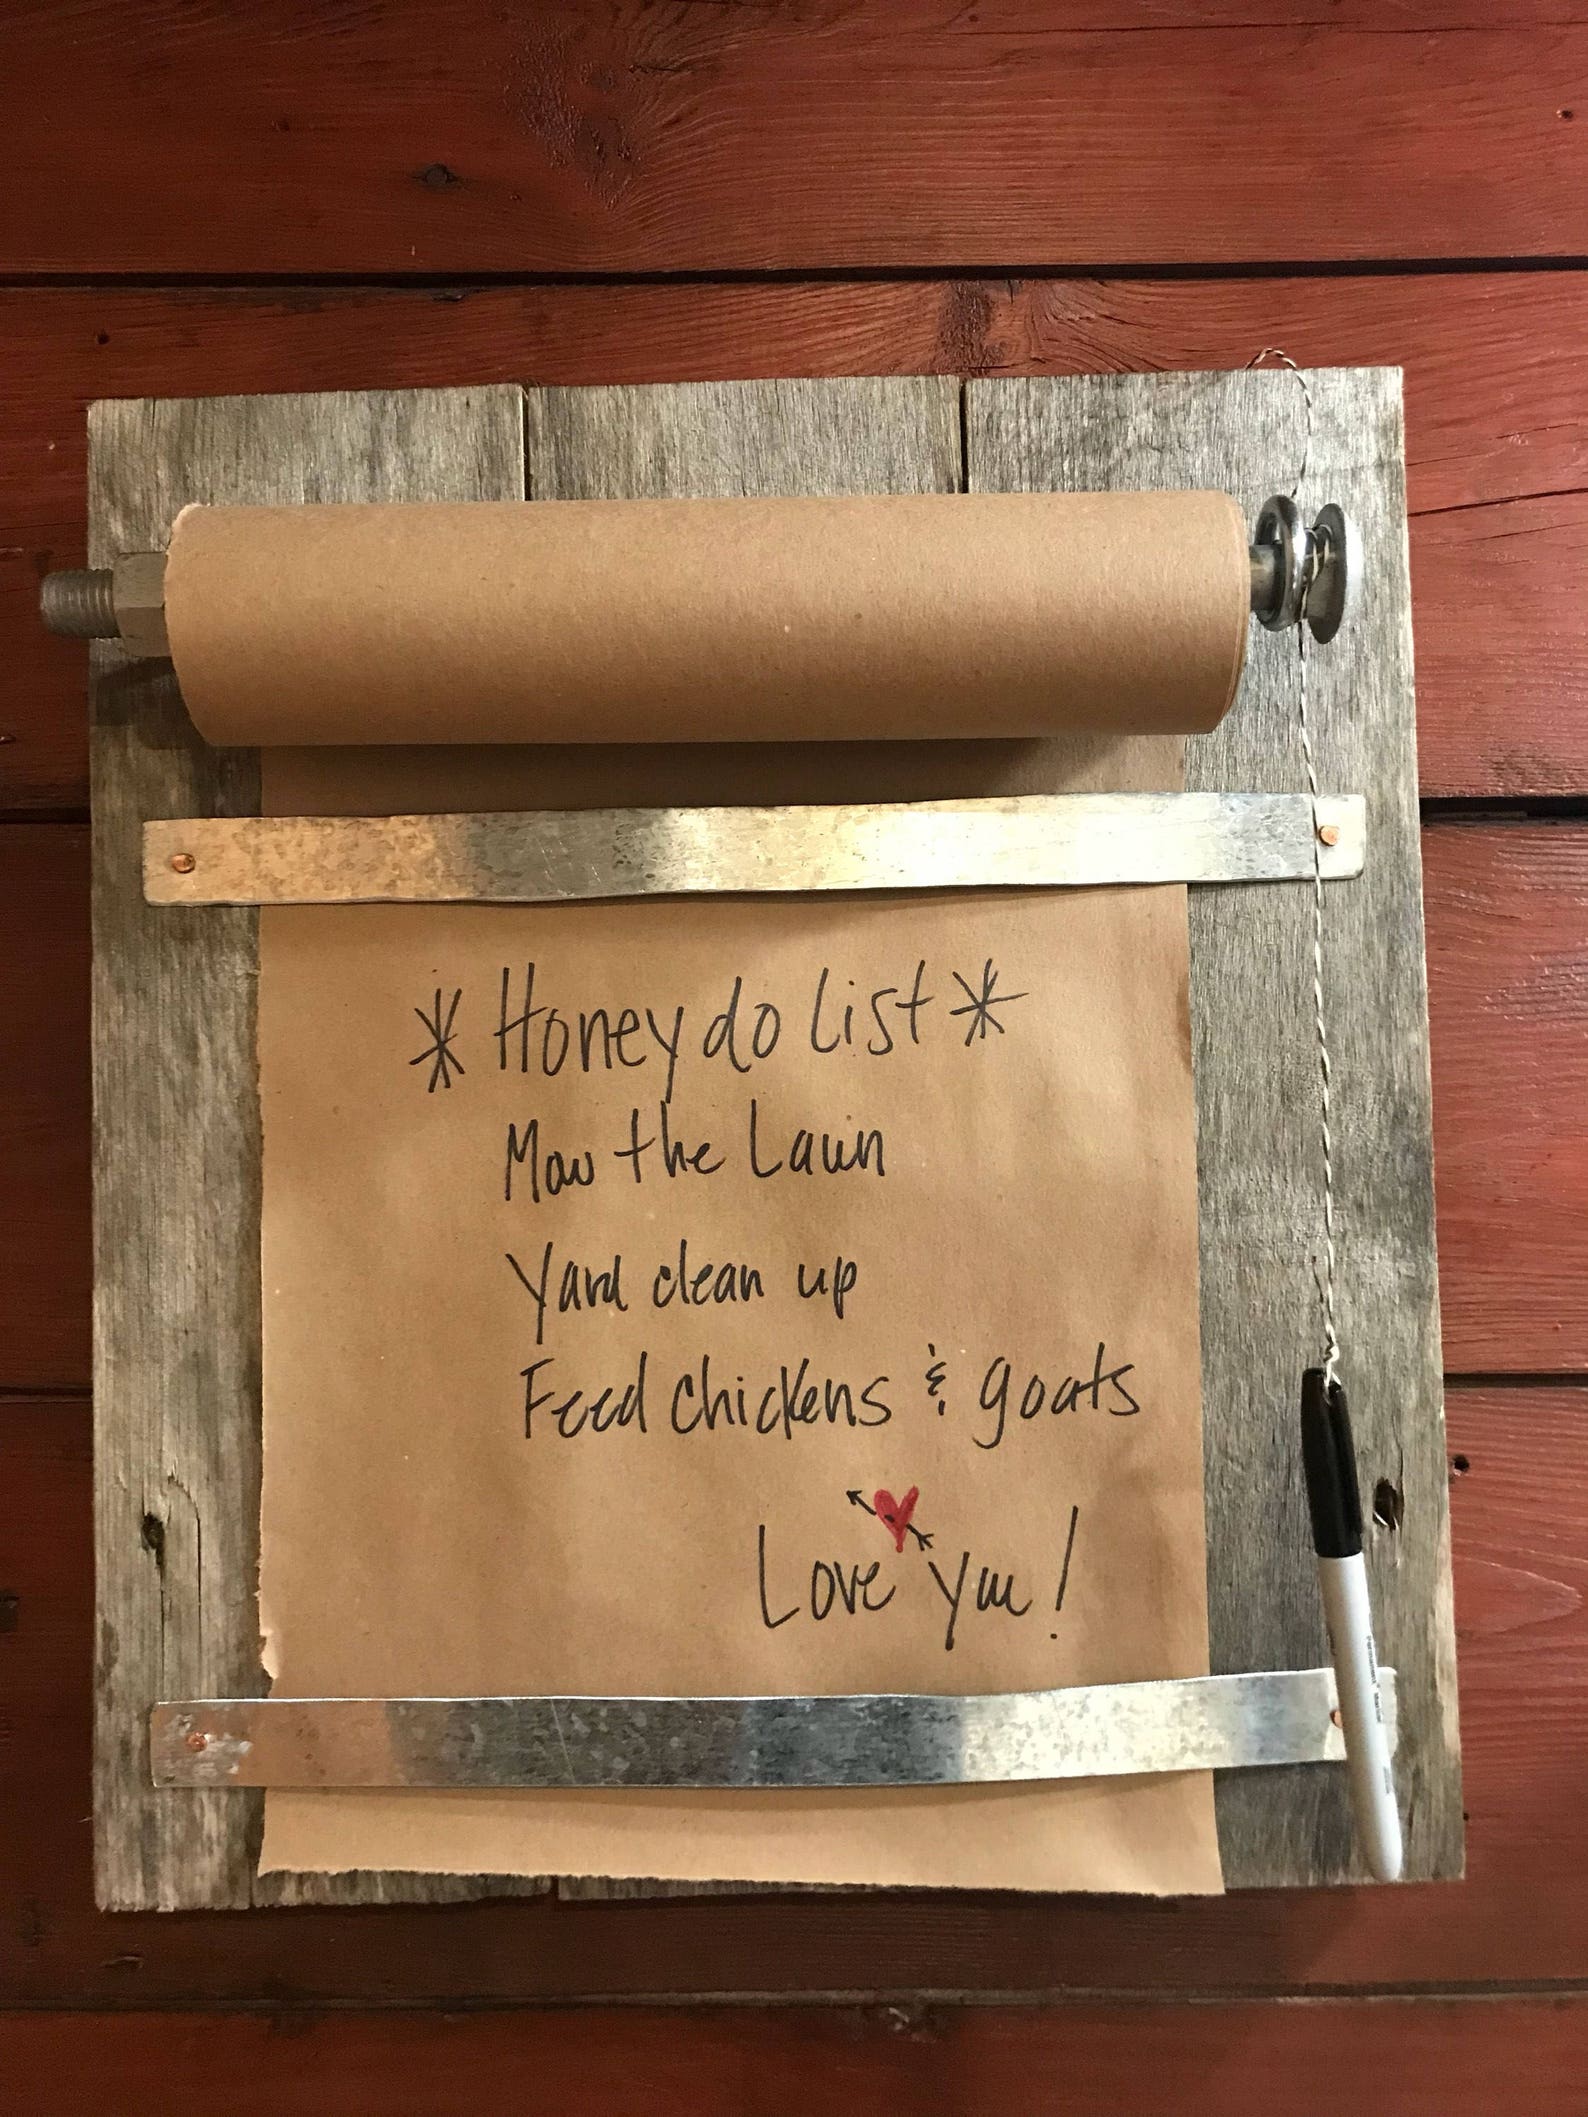 * Honey do list *
Mow the Lawn
Yard clean up
Feed chickens & goats
Love you!